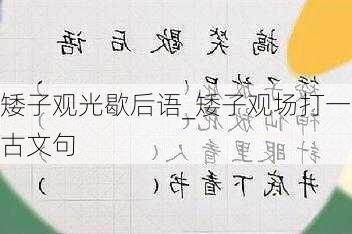 搞笑歇后语
矮子观光歇后语_矮子观场打一
古文句
针眼里看人（ ）
井底下看书（ ）